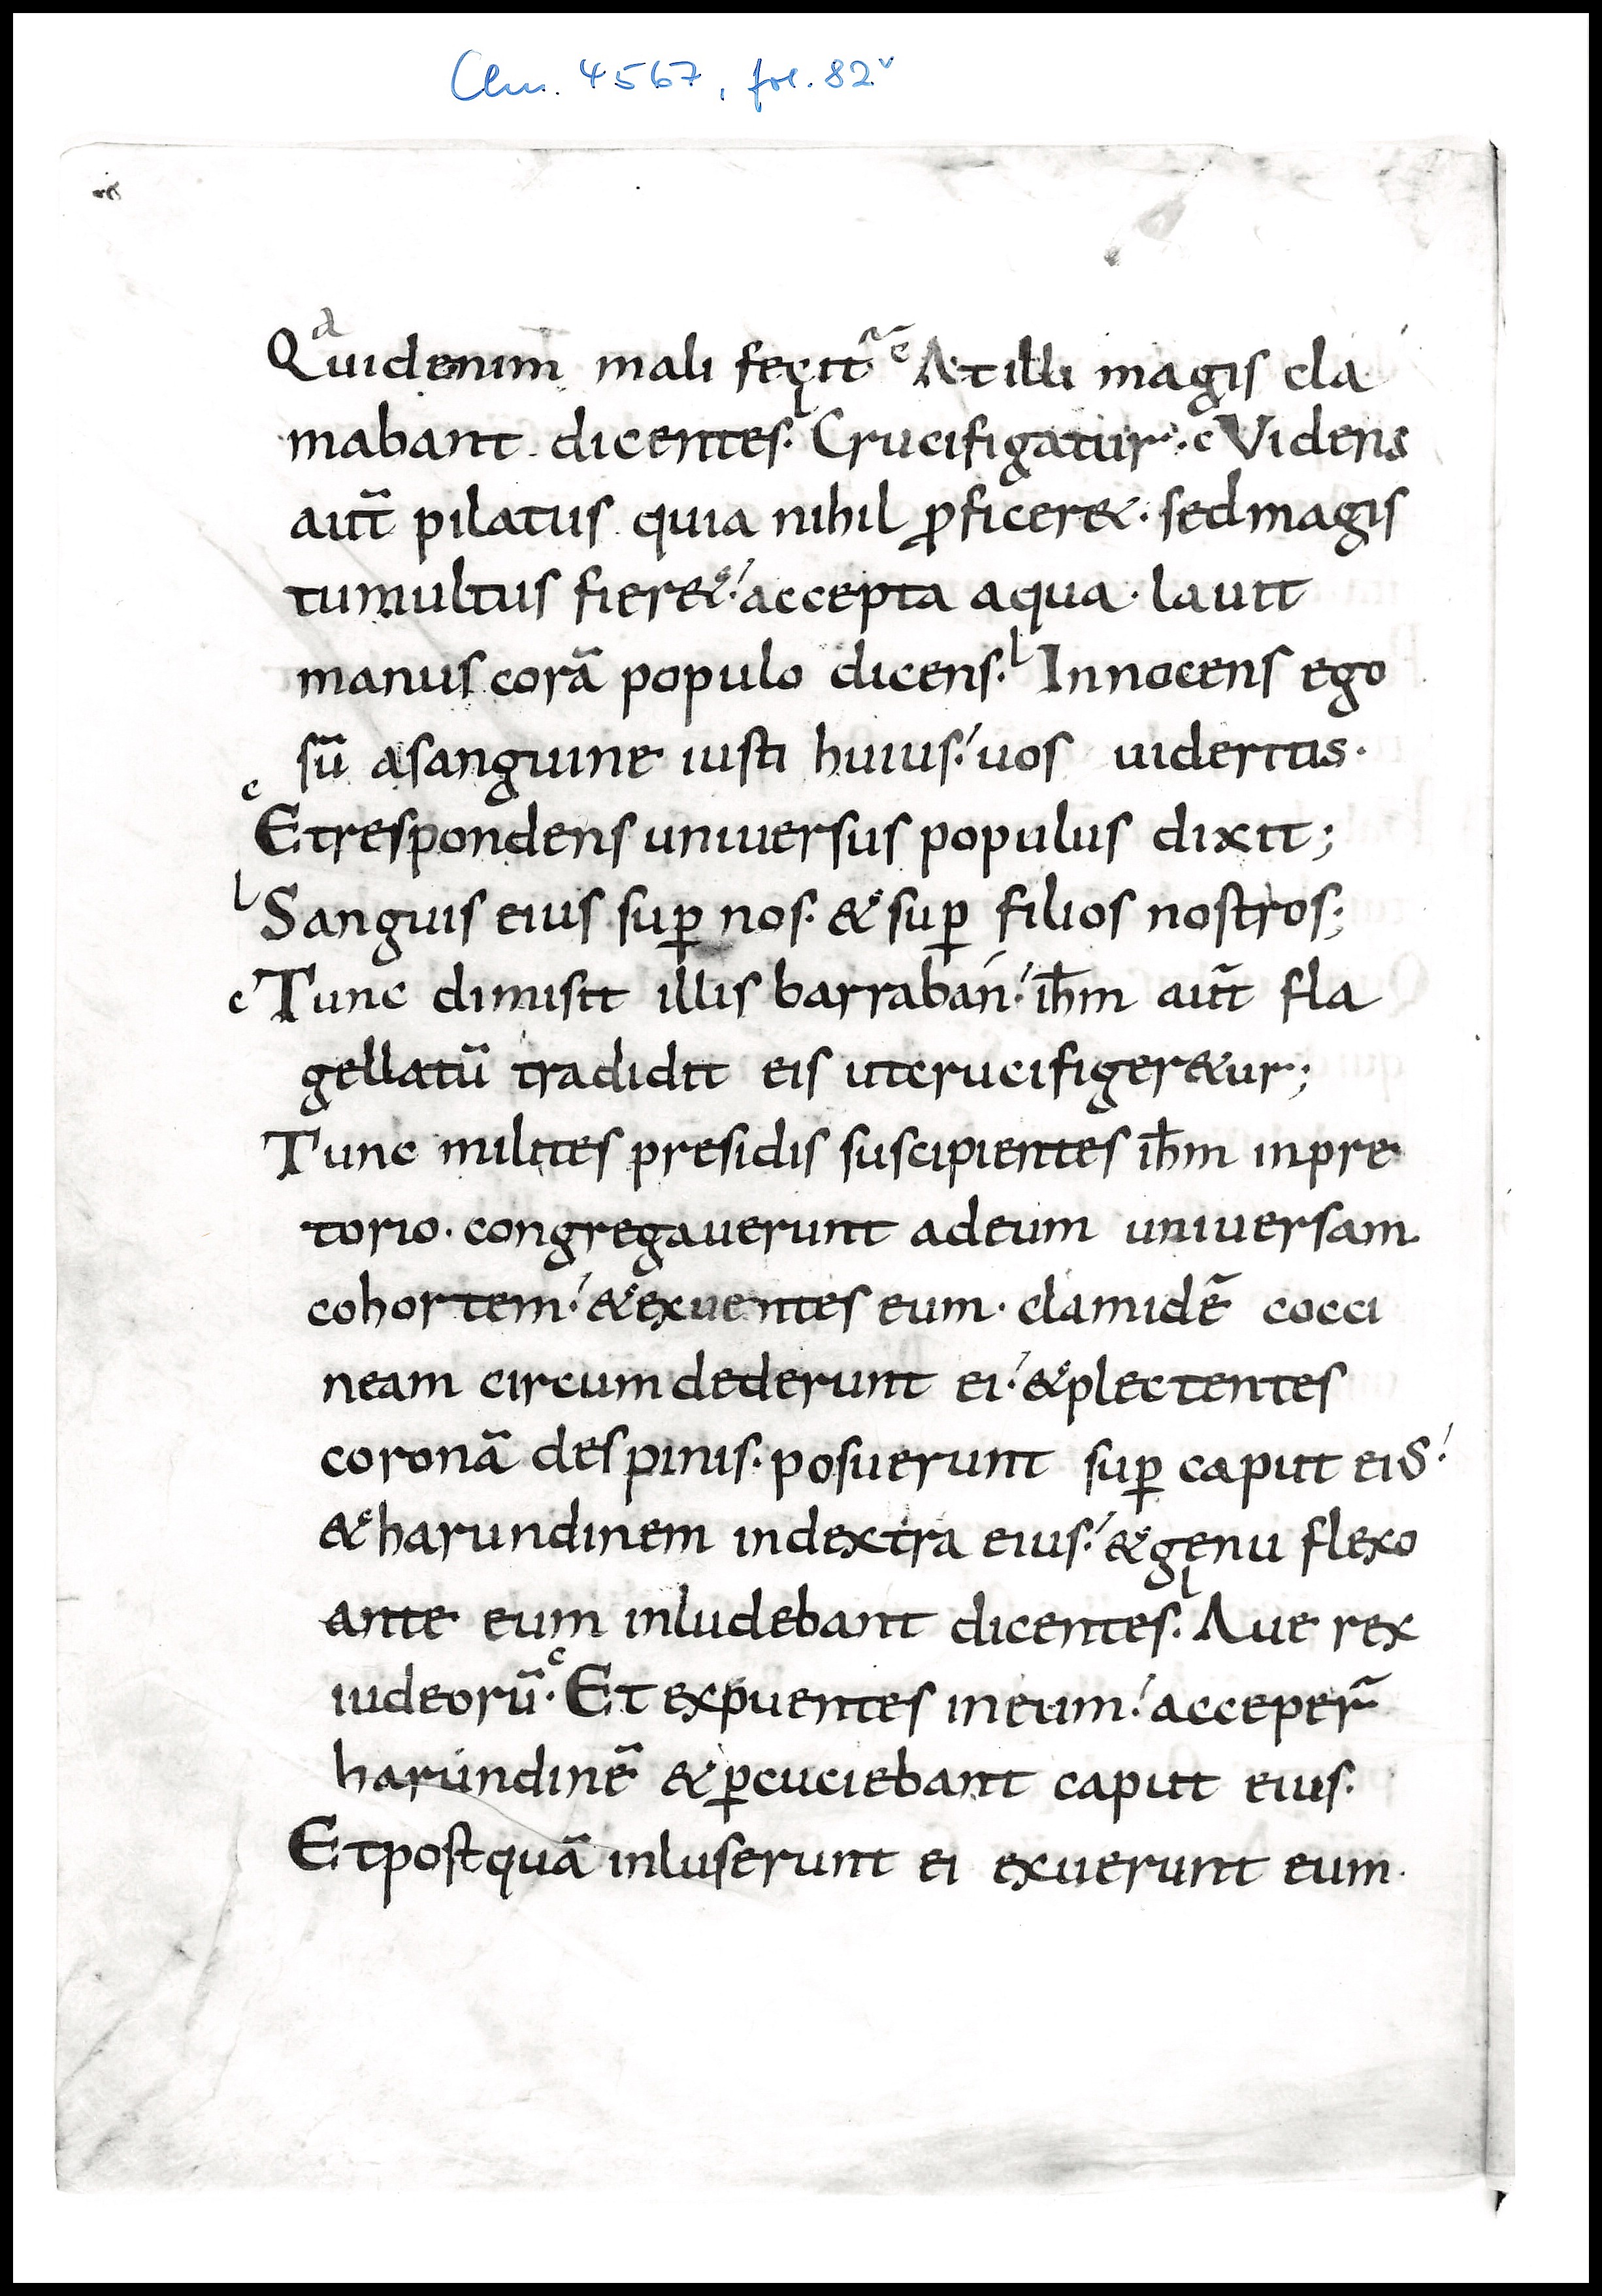 Clm. 4567, fol. 82v
Quidenim mali fecit At illi magis cla
mabant dicentes. Crucifigatur. c Videns
aut̄ pilatus quia nihil ꝓficer&. sedmagis
tumultus fier&. accepta aqua. lauit
manus corā populo dicens. l Innocens ego
sū asanguine iusti huius. uos uideritis.
c Etrespondens uniuersus populus dixit;
l Sanguis eius suꝑ nos. & suꝑ filios nostros;
c Tunc dimisit illis barraban. ih̄m aut̄ fla
gellatū tradidit eis utcrucifiger&ur;
Tunc milites presidis suscipientes ih̄m inpre
torio. congregauerunt adeum uniuersam
cohortem. &exuentes eum. clamidē cocci
neam circumdederunt ei. &plectentes
coronā despinis. posuerunt suꝑ caput eiꝰ
&harundinem indextra eius. &genu flexo
ante eum inludebant dicentes. l Aue rex
iudeorū. c Et expuentes ineum. acceper̄
harundinē &ꝑcuciebant caput eius.
Etpostquā inluserunt ei exuerunt eum.